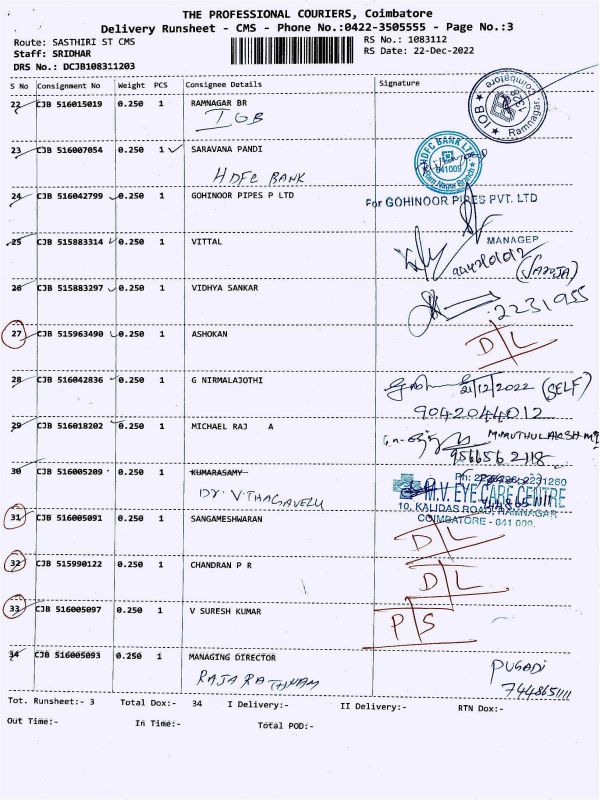 THE PROFESSIONAL COURIERS, Coimbatore
Delivery Runsheet - CMS - Phone No.:0422-3505555 - Page No.:3
Route: SASTHIRI ST CMS
RS No.: 1083112
Staff: SRIDHAR
RS Date: 22-Dec-2022
DRS No.: DCJB108311203
S No Consignment No Weight PCS Consignee Details Signature
22 CJB 516015019 0.250 1 RAMNAGAR BR
IOB
IOB Ramnagar. Coimbatore
23 CJB 516007054 0.250 1 SARAVANA PANDI
HDFC BANK
HDFC BANK LTD 641009 Ram Nagar Branch
24 CJB 516042799 0.250 1 GOHINOOR PIPES P LTD
For GOHINOOR PIPES PVT. LTD
MANAGER
25 CJB 515883314 0.250 1 VITTAL
26 CJB 515883297 0.250 1 VIDHYA SANKAR
2231955
27 CJB 515963490 0.250 1 ASHOKAN
D L
28 CJB 516042836 0.250 1 G NIRMALAJOTHI
21/12/2022 (SELF)
9042044012
29 CJB 516018202 0.250 1 MICHAEL RAJ A
9566562118
30 CJB 516005209 0.250 1 KUMARASAMY
Dr V THAGAVELU
M.V. EYE CARE CENTRE
10, KALIDAS ROAD, RAMNAGAR
COIMBATORE - 641 009.
31 CJB 516005091 0.250 1 SANGAMESHWARAN
D L
32 CJB 515990122 0.250 1 CHANDRAN P R
D L
33 CJB 516005097 0.250 1 V SURESH KUMAR
P S
34 CJB 516005093 0.250 1 MANAGING DIRECTOR
RAJARATHNAM
PUGADI
7448651111
Tot. Runsheet:- 3 Total Dox:- 34 I Delivery:- II Delivery:- RTN Dox:-
Out Time:- In Time:- Total POD:-